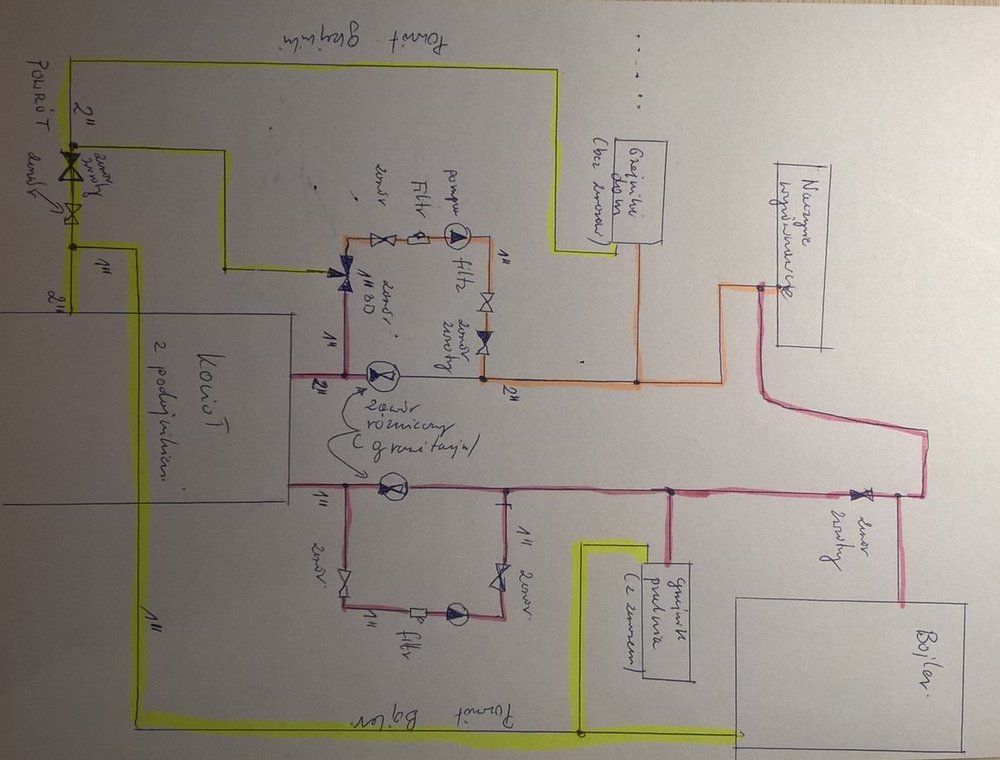 Powrót grzejniki
POWRÓT
2"
zawór
zwrotny
zawór
1"
2"
zawór
Filtr
pompa
1"
filtr
zawór
1" 3D
zawór
zwrotny
1"
2"
2"
Grzejniki
dom
(bez zaworów)
Naczynie
wyrównawcze
Kocioł
z podajnikiem
zawór
różnicowy
Grawitacja
1"
zawór
1"
filtr
1"
zawór
grzejnik
pralnia
(z zaworem)
zawór
zwrotny
Bojler
1"
Powrót Bojler